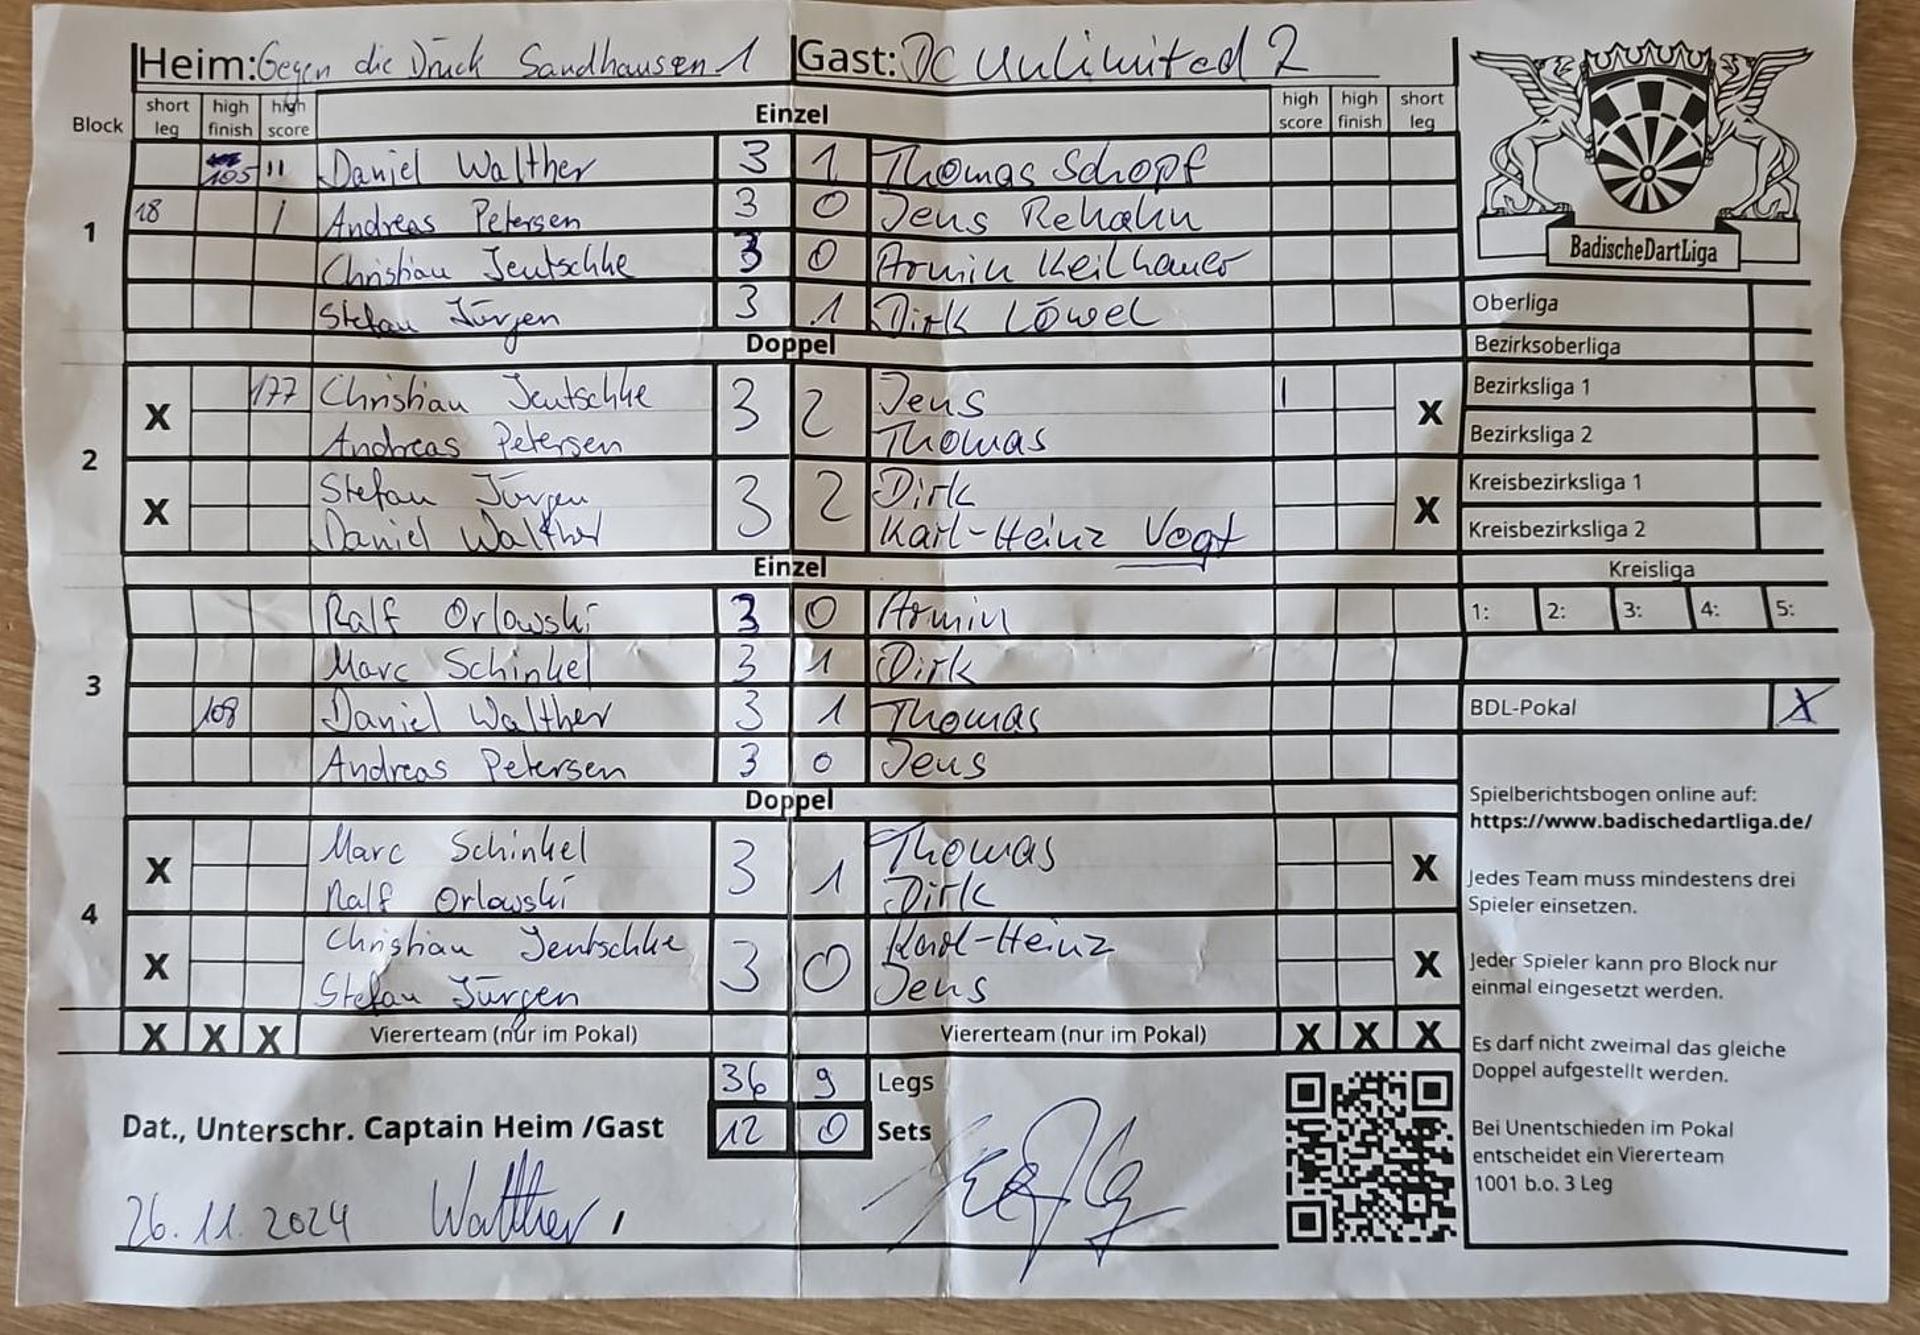 Heim: Gegen die Druck Sandhausen 1 Gast: DC Unlimited 2
Block short leg high finish high score Einzel high score high finish short leg
1
105 11 Daniel Walther 3 1 Thomas Schopf
18 1 Andreas Petersen 3 0 Jens Rehahn
Christian Jeutschke 3 0 Armin Keilhauer
Stefan Jürgen 3 1 Dirk Löwel
Doppel
2
X 177 Christian Jeutschke 3 2 Jens 1 X
Andreas Petersen Thomas
X Stefan Jürgen 3 2 Dirk X
Daniel Walther Karl-Heinz Vogt
Einzel
3
Ralf Orlowski 3 0 Armin
Marc Schinkel 3 1 Dirk
108 Daniel Walther 3 1 Thomas
Andreas Petersen 3 0 Jens
Doppel
4
X Marc Schinkel 3 1 Thomas X
Ralf Orlowski Dirk
X Christian Jeutschke 3 0 Karl-Heinz X
Stefan Jürgen Jens
X X X Viererteam (nur im Pokal) Viererteam (nur im Pokal) X X X
36 9 Legs
Dat., Unterschr. Captain Heim /Gast 12 0 Sets
26.11.2024 Walther
BadischeDartLiga
Oberliga
Bezirksoberliga
Bezirksliga 1
Bezirksliga 2
Kreisbezirksliga 1
Kreisbezirksliga 2
Kreisliga
1: 2: 3: 4: 5:
BDL-Pokal X
Spielberichtsbogen online auf:
https://www.badischedartliga.de/
Jedes Team muss mindestens drei
Spieler einsetzen.
Jeder Spieler kann pro Block nur
einmal eingesetzt werden.
Es darf nicht zweimal das gleiche
Doppel aufgestellt werden.
Bei Unentschieden im Pokal
entscheidet ein Viererteam
1001 b.o. 3 Leg